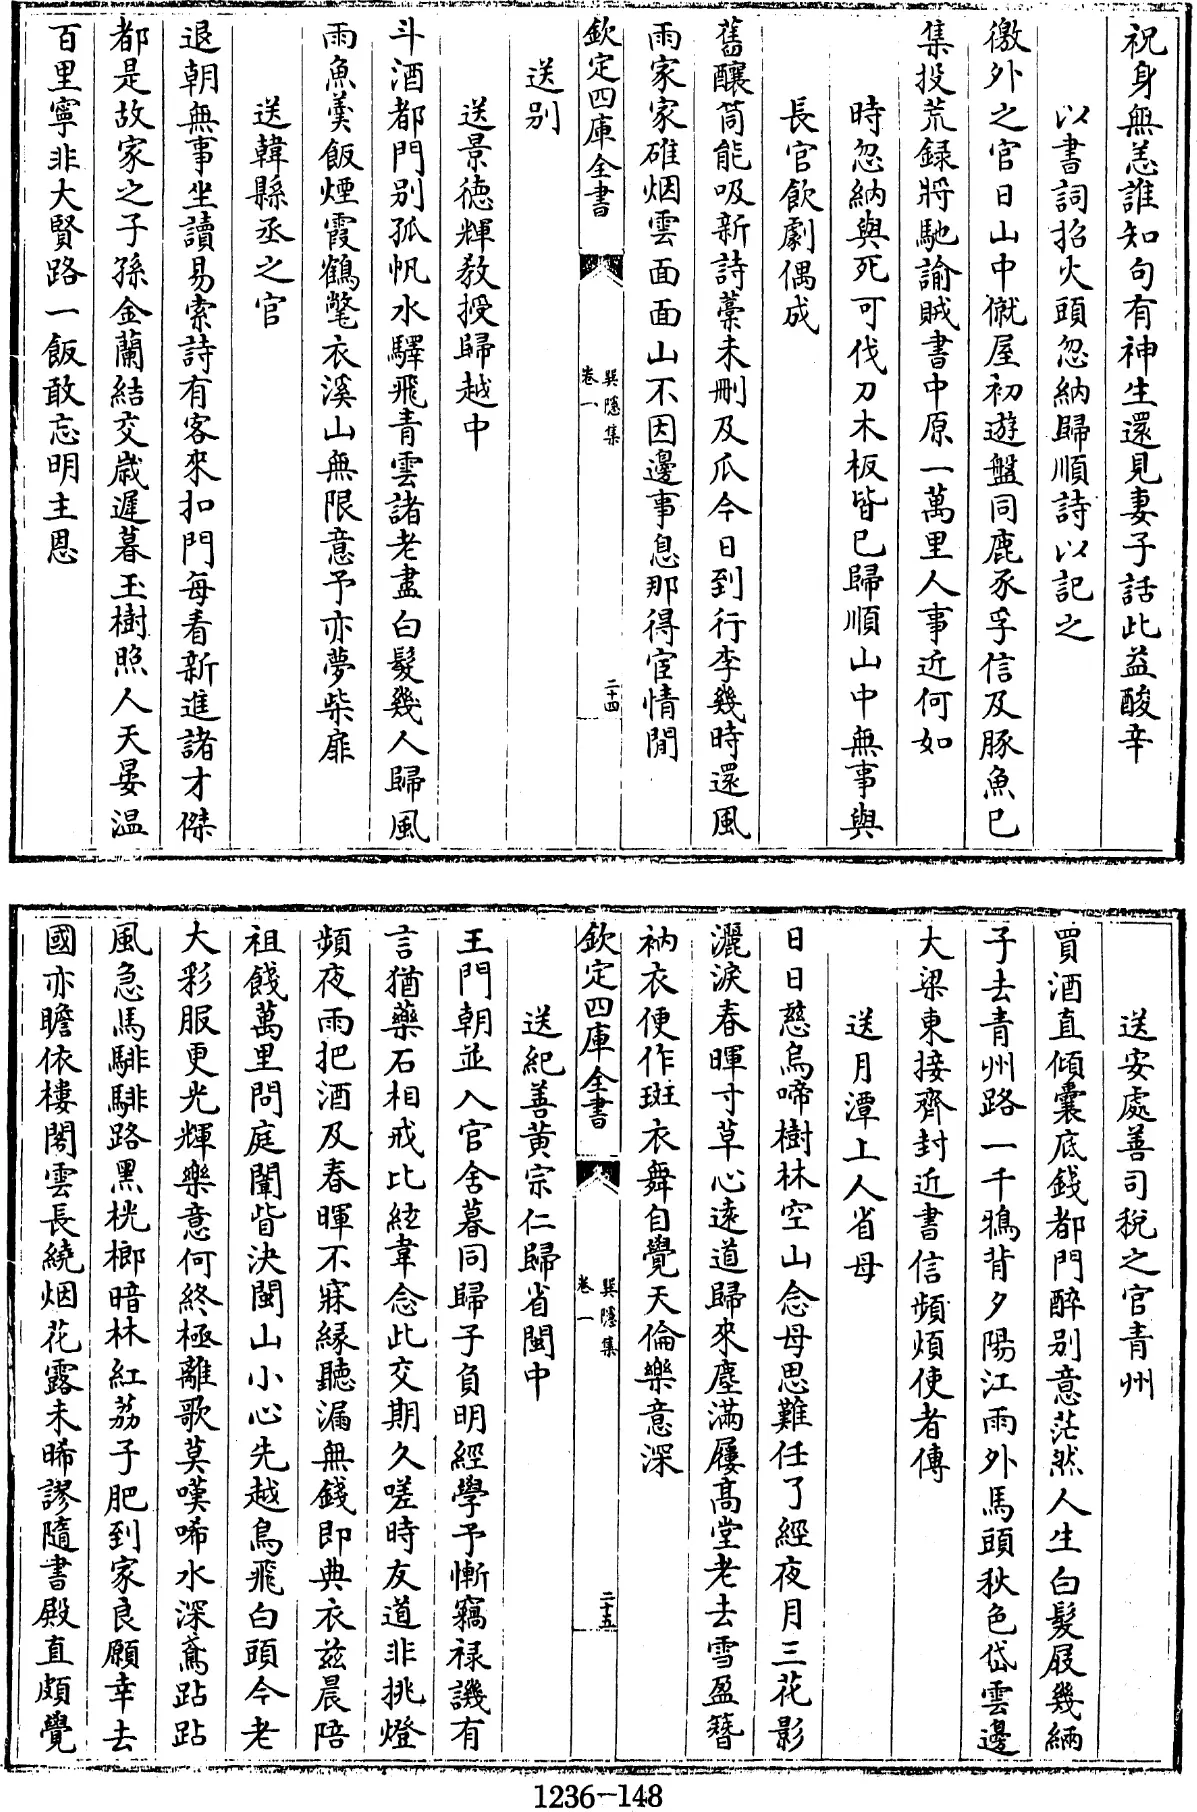 祝身無恙誰知句有神生還見妻子話此益酸辛
以書詞招火頭忽納歸順詩以記之
徼外之官日山中僦屋初遊盤同鹿豕孚信及豚魚已
集投荒録將馳諭賊書中原一萬里人事近何如
時忽納與死可伐刀木板皆已歸順山中無事與
長官飲劇偶成
舊釀筒能吸新詩藁未刪及瓜今日到行李幾時還風
雨家家碓烟雲面面山不因邊事息那得宦情閒
欽定四庫全書
巽隱集
卷一
二十四
送别
送景德輝敎授歸越中
斗酒都門别孤帆水驛飛青雲諸老盡白髮幾人歸風
雨魚羹飯煙霞鶴氅衣溪山無限意予亦夢柴扉
送韓縣丞之官
退朝無事坐讀易索詩有客來扣門每看新進諸才傑
都是故家之子孫金蘭結交歲遲暮玉樹照人天晏温
百里寧非大賢路一飯敢忘明主恩
送安處善司稅之官青州
買酒直傾囊底錢都門醉别意茫然人生白髮屐幾緉
子去青州路一千鴉背夕陽江雨外馬頭秋色岱雲邊
大梁東接齊封近書信頻煩使者傳
送月潭上人省母
日日慈烏啼樹林空山念母思難任了經夜月三花影
灑淚春暉寸草心遠道歸來塵滿屨高堂老去雪盈簪
衲衣便作斑衣舞自覺天倫樂意深
欽定四庫全書
巽隱集
卷一
二十五
送紀善黄宗仁歸省閩中
王門朝並入官舍暮同歸子負明經學予慚竊祿譏有
言猶藥石相戒比絃韋念此交期久嗟時友道非挑燈
頻夜雨把酒及春暉不寐緣聽漏無錢即典衣兹晨陪
祖餞萬里問庭闈眥决閩山小心先越鳥飛白頭今老
大彩服更光輝樂意何終極離歌莫嘆唏水深鳶跕跕
風急馬騑騑路黑桄榔暗林紅荔子肥到家良願幸去
國亦瞻依樓閣雲長繞烟花露未晞謬隨書殿直頗覺
1236-148